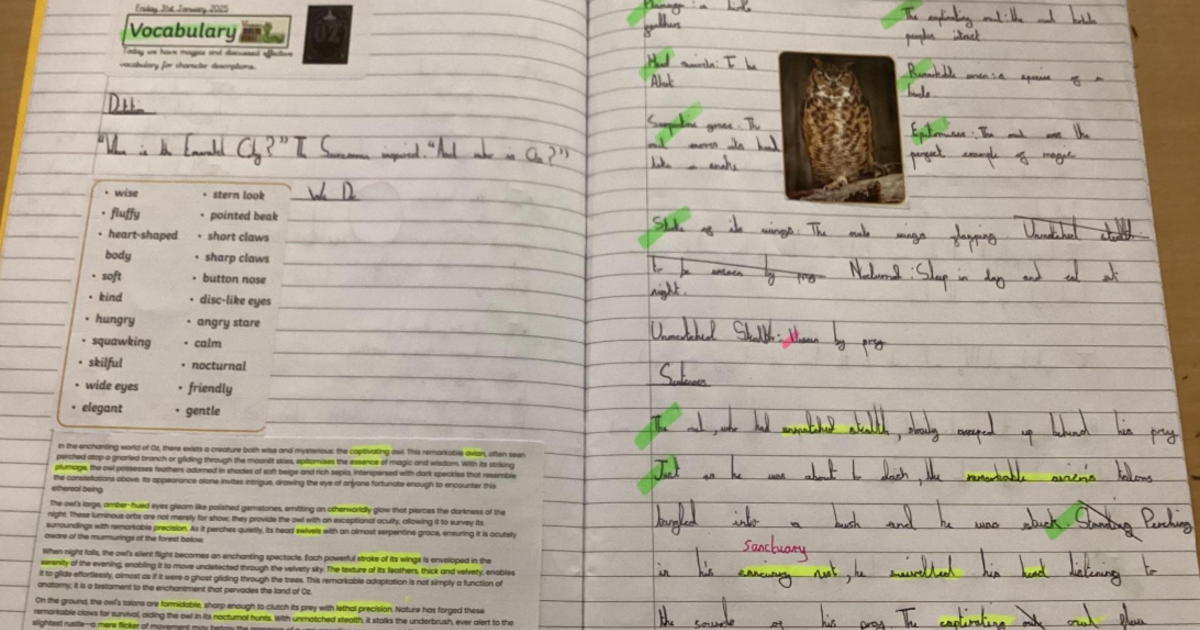 Friday 31st January 2025
Vocabulary
OZ
Today we have magpie and discussed effective
vocabulary for character descriptions.
"Where is the Emerald City?" The Scarecrow inquired. "And who is Oz?"
We Do
• wise
• fluffy
• heart-shaped
body
• soft
• kind
• hungry
• squawking
• skilful
• wide eyes
• elegant
• stern look
• pointed beak
• short claws
• sharp claws
• button nose
• disc-like eyes
• angry stare
• calm
• nocturnal
• friendly
• gentle
In the enchanting world of Oz, there exists a creature both wise and mysterious: the captivating owl. This remarkable avian, often seen
perched atop a gnarled branch or gliding through the moonlit skies, epitomises the essence of magic and wisdom. With its striking
plumage, the owl possesses feathers adorned in shades of soft beige and rich sepia, interspersed with dark speckles that resemble
the constellations above. Its appearance alone invites intrigue, drawing the eye of anyone fortunate enough to encounter this
ethereal being.
The owl's large, amber-hued eyes gleam like polished gemstones, emitting an otherworldly glow that pierces the darkness of the
night. These luminous orbs are not merely for show; they provide the owl with an exceptional acuity, allowing it to survey its
surroundings with remarkable precision. As it perches quietly, its head swivels with an almost serpentine grace, ensuring it is acutely
aware of the murmurings of the forest below.
When night falls, the owl's silent flight becomes an enchanting spectacle. Each powerful stroke of its wings is enveloped in the
serenity of the evening, enabling it to move undetected through the velvety sky. The texture of its feathers, thick and velvety, enables
it to glide effortlessly, almost as if it were a ghost gliding through the trees. This remarkable adaptation is not simply a function of
anatomy; it is a testament to the enchantment that pervades the land of Oz.
On the ground, the owl's talons are formidable, sharp enough to clutch its prey with lethal precision. Nature has forged these
remarkable claws for survival, aiding the owl in its nocturnal hunts. With unmatched stealth, it stalks the underbrush, ever alert to the
slightest rustle—a mere flicker of movement may betray the presence of
Plumage: a birds
feathers
The captivating owl: the owl holds
peoples
Head swivels: To be
Alert
Remarkable avian: a species of a
birds.
Serpentine grace: The
owl moves its head
like a snake
Epitomises: The owl are the
perfect example of magic
Stroke of its wings: The owls wings flapping Unmatched stealth:
to be unseen by prey Nocturnal: Sleep in day and eat at
night.
Unmatched Stealth: Unseen by prey
Sentences
The owl, who had unmatched stealth, slowly creeped up behind his prey
Just as he was about to dash, the remarkable avian's talons
tangled into a bush and he was stuck. Standing Perching
sanctuary
in his nest, he swivelled his head listening to
the sounds of his prey. The captivating owl